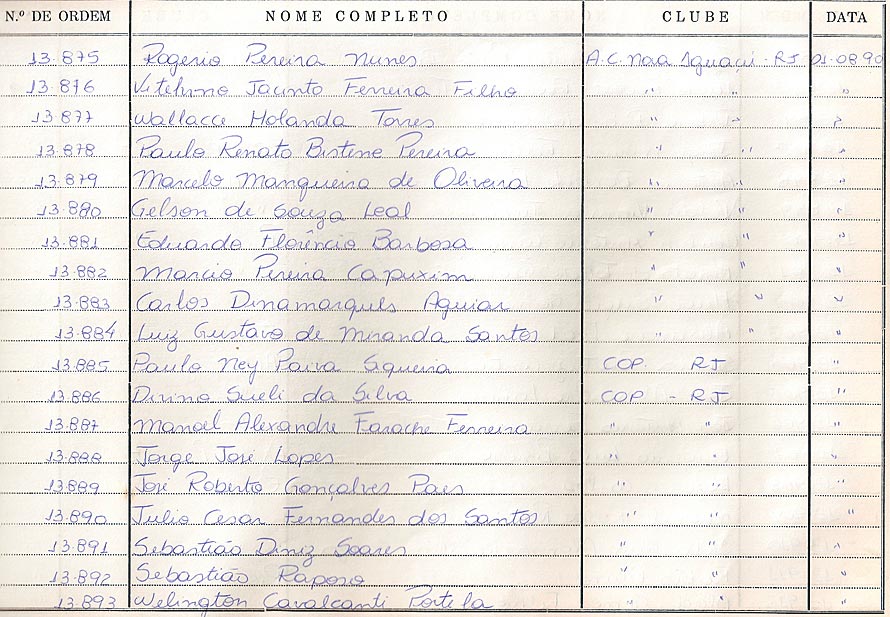 N.º DE ORDEM NOME COMPLETO CLUBE DATA
13.875 Rogerio Pereira Nunes A.C. Nova Iguaçú - RJ 01.08.90
13.876 Vitelvino Jacinto Ferreira Filho " " "
13.877 Wallacce Holanda Torres " " "
13.878 Paulo Renato Bistene Pereira " " "
13.879 Marcelo Mangueira de Oliveira " " "
13.880 Gelson de Souza Leal " " "
13.881 Eduardo Florêncio Barbosa " " "
13.882 Marcio Pereira Capuxim " " "
13.883 Carlos Dinamarques Aguiar " " "
13.884 Luiz Gustavo de Miranda Santos " " "
13.885 Paulo Ney Paiva Siqueira COP. RJ "
13.886 Divino Sueli da Silva COP - RJ "
13.887 Manoel Alexandre Farache Ferreira " " "
13.888 Jorge José Lopes " " "
13.889 José Roberto Gonçalves Paes " " "
13.890 Julio Cesar Fernandes dos Santos " " "
13.891 Sebastião Diniz Soares " " "
13.892 Sebastião Raposo " " "
13.893 Welington Cavalcanti Portela " " "